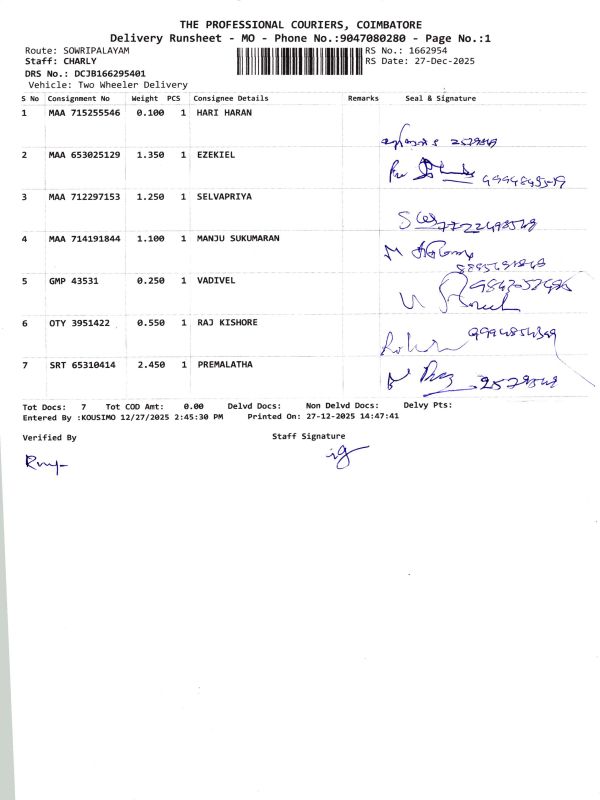 THE PROFESSIONAL COURIERS, COIMBATORE
Delivery Runsheet - MO - Phone No.:9047080280 - Page No.:1
Route: SOWRIPALAYAM RS No.: 1662954
Staff: CHARLY RS Date: 27-Dec-2025
DRS No.: DCJB166295401
Vehicle: Two Wheeler Delivery
S No Consignment No Weight PCS Consignee Details Remarks Seal & Signature
1 MAA 715255546 0.100 1 HARI HARAN
2 MAA 653025129 1.350 1 EZEKIEL
3 MAA 712297153 1.250 1 SELVAPRIYA
4 MAA 714191844 1.100 1 MANJU SUKUMARAN
5 GMP 43531 0.250 1 VADIVEL
6 OTY 3951422 0.550 1 RAJ KISHORE
7 SRT 65310414 2.450 1 PREMALATHA
Tot Docs: 7 Tot COD Amt: 0.00 Delvd Docs: Non Delvd Docs: Delvy Pts:
Entered By :KOUSIMO 12/27/2025 2:45:30 PM Printed On: 27-12-2025 14:47:41
Verified By Staff Signature